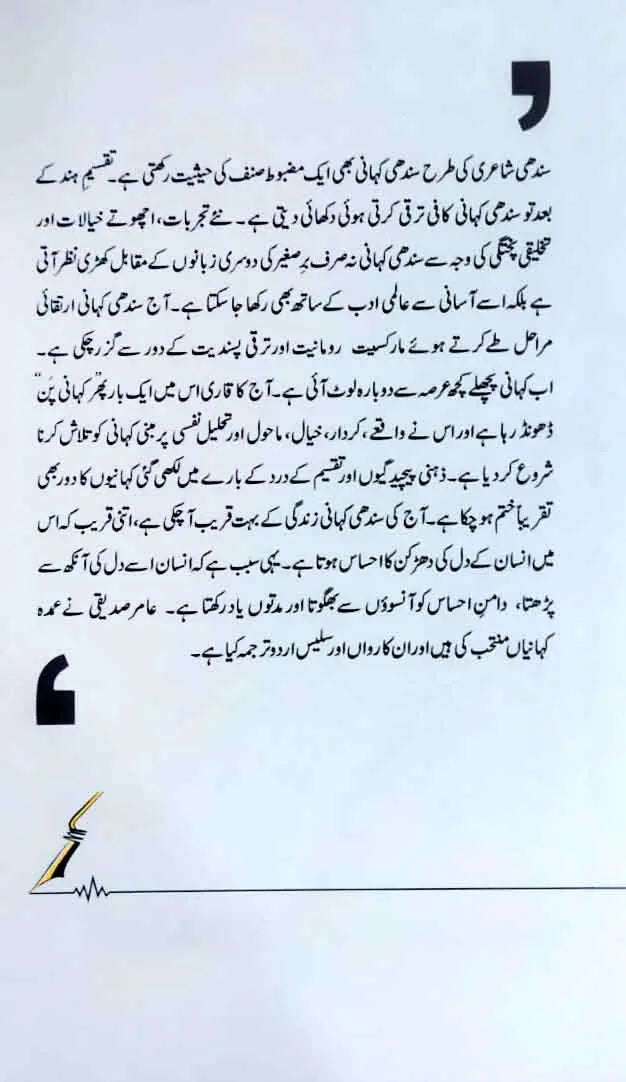 سندھی شاعری کی طرح سندھی کہانی بھی ایک مضبوط صنف کی حیثیت رکھتی ہے۔ تقسیمِ ہند کے
بعد تو سندھی کہانی کافی ترقی کرتی ہوئی دکھائی دیتی ہے۔ نئے تجربات، اچھوتے خیالات اور
تخلیقی پختگی کی وجہ سے سندھی کہانی نہ صرف برِصغیر کی دوسری زبانوں کے مقابل کھڑی نظر آتی
ہے بلکہ اسے آسانی سے عالمی ادب کے ساتھ بھی رکھا جا سکتا ہے۔ آج سندھی کہانی ارتقائی
مراحل طے کرتے ہوئے مارکسیت رومانیت اور ترقی پسندیت کے دور سے گزر چکی ہے۔
اب کہانی پچھلے کچھ عرصہ سے دوبارہ لوٹ آئی ہے۔ آج کا قاری اس میں ایک بار پھر "کہانی پَن"
ڈھونڈ رہا ہے اور اس نے واقعے، کردار، خیال، ماحول اور تحلیل نفسی پر مبنی کہانی کو تلاش کرنا
شروع کر دیا ہے۔ ذہنی پیچیدگیوں اور تقسیم کے درد کے بارے میں لکھی گئی کہانیوں کا دور بھی
تقریباً ختم ہو چکا ہے۔ آج کی سندھی کہانی زندگی کے بہت قریب آ چکی ہے، اتنی قریب کہ اس
میں انسان کے دل کی دھڑکن کا احساس ہوتا ہے۔ یہی سبب ہے کہ انسان اسے دل کی آنکھ سے
پڑھتا، دامنِ احساس کو آنسوؤں سے بھگوتا اور مدتوں یاد رکھتا ہے۔ عامر صدیقی نے عمدہ
کہانیاں منتخب کی ہیں اور ان کا رواں اور سلیس اردو ترجمہ کیا ہے۔